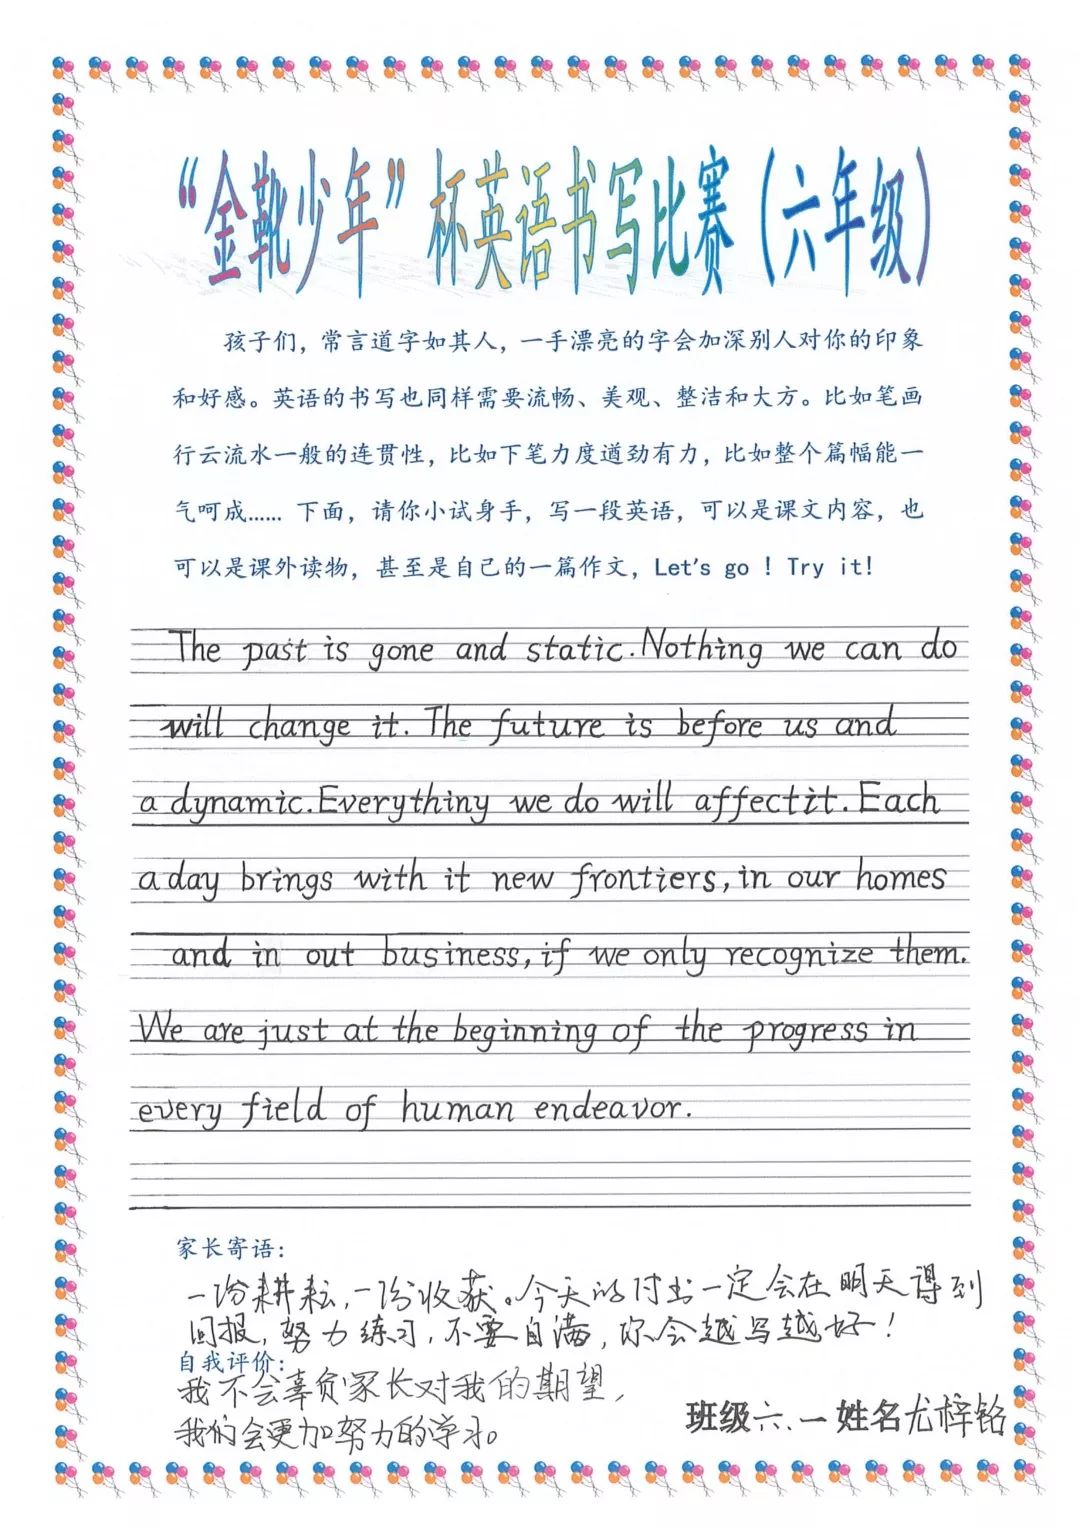 “金靴少年”杯英语书写比赛（六年级）
孩子们，常言道字如其人，一手漂亮的字会加深别人对你的印象
和好感。英语的书写也同样需要流畅、美观、整洁和大方。比如笔画
行云流水一般的连贯性，比如下笔力度遒劲有力，比如整个篇幅能一
气呵成…… 下面，请你小试身手，写一段英语，可以是课文内容，也
可以是课外读物，甚至是自己的一篇作文，Let's go ! Try it!
The past is gone and static.Nothing we can do
will change it. The future is before us and
a dynamic.Everythiny we do will affectit. Each
a day brings with it new frontiers,in our homes
and in out business,if we only recognize them.
We are just at the beginning of the progress in
every field of human endeavor.
家长寄语：
一份耕耘，一份收获。今天的付出一定会在明天得到
回报，努力练习，不要自满，你会越写越好！
自我评价：
我不会辜负家长对我的期望，
我们会更加努力的学习。
班级六.一姓名尤梓铭